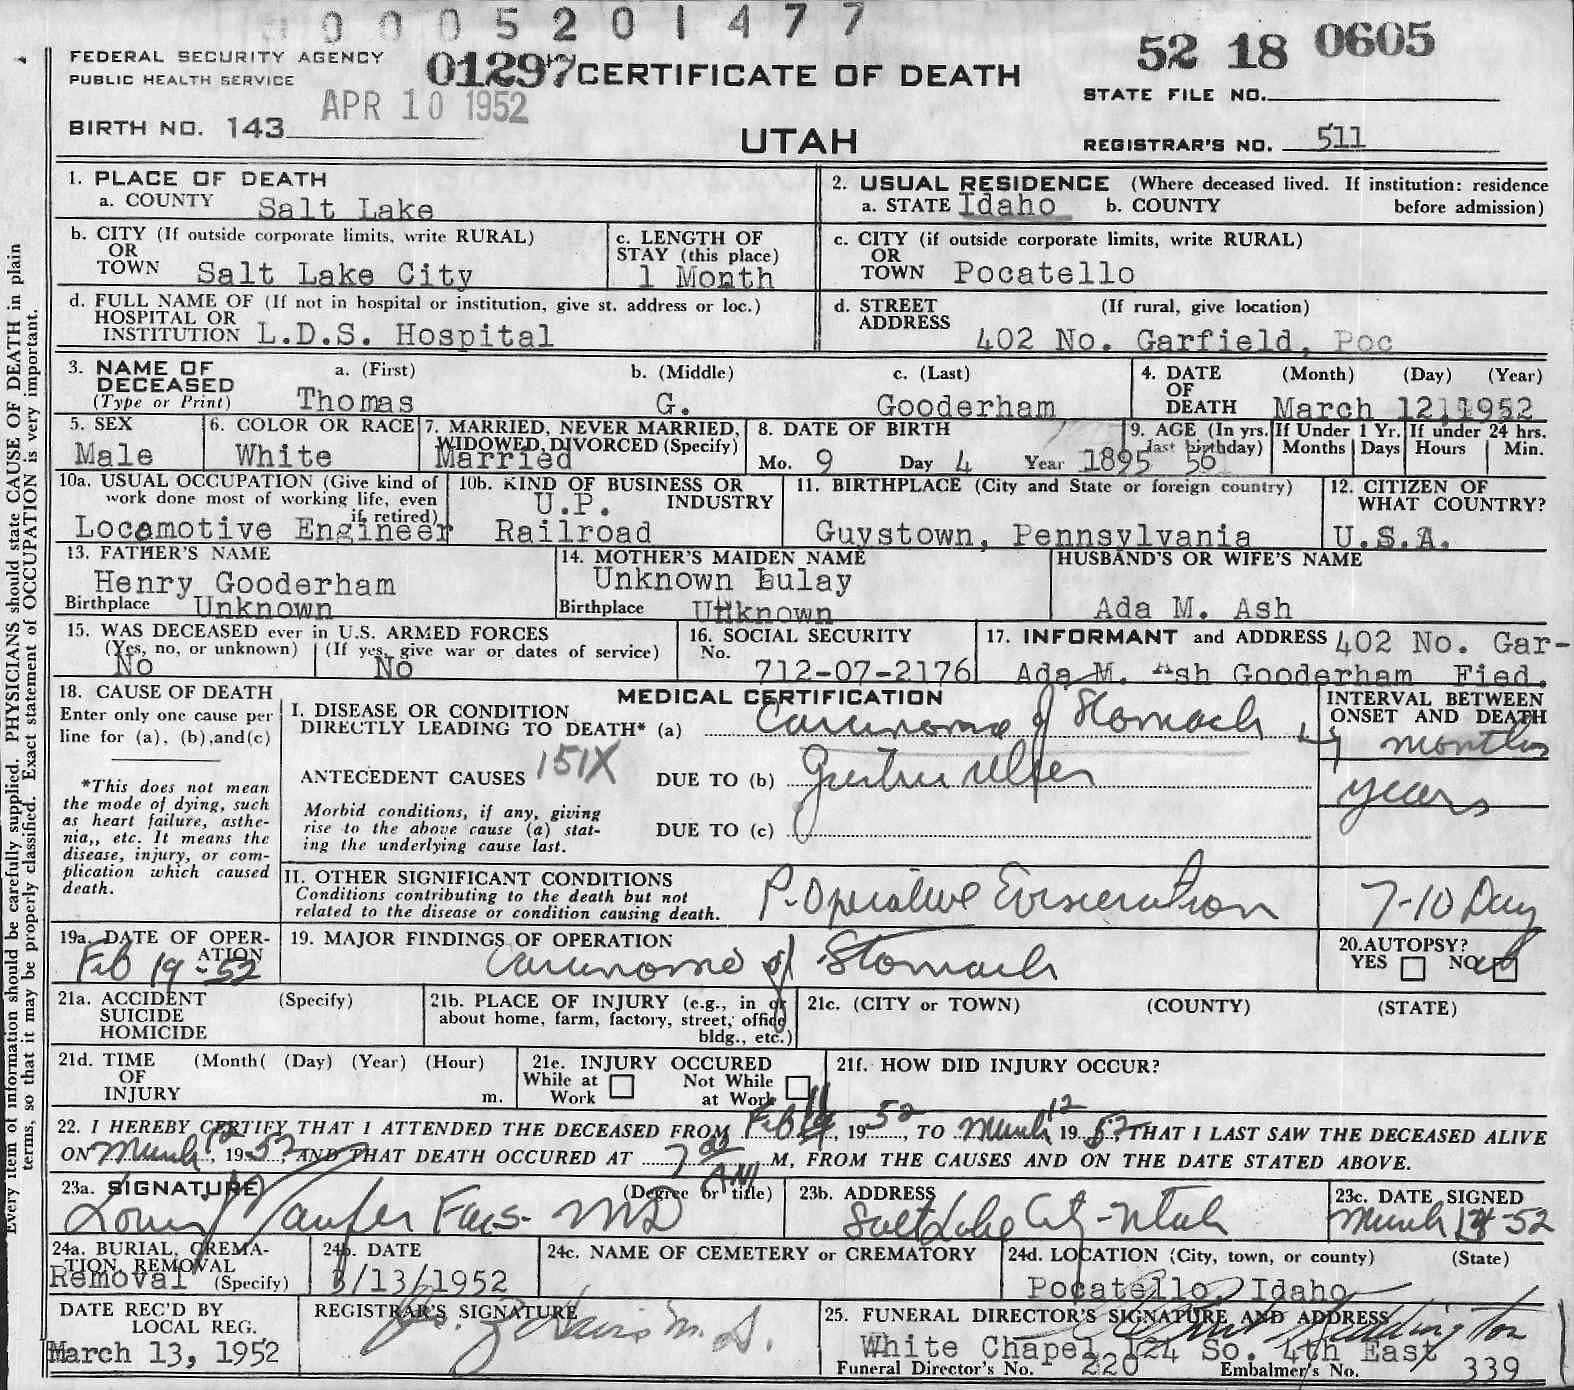 0005201477
FEDERAL SECURITY AGENCY
PUBLIC HEALTH SERVICE
01297 CERTIFICATE OF DEATH
52 18 0605
STATE FILE NO.
APR 10 1952
BIRTH NO. 143
UTAH
REGISTRAR'S NO. 511
Every item of information should be carefully supplied. PHYSICIANS should state CAUSE OF DEATH in plain
terms, so that it may be properly classified. Exact statement of OCCUPATION is very important.
1. PLACE OF DEATH
a. COUNTY Salt Lake
2. USUAL RESIDENCE (Where deceased lived. If institution: residence
a. STATE Idaho b. COUNTY before admission)
b. CITY (If outside corporate limits, write RURAL)
OR
TOWN Salt Lake City
c. LENGTH OF
STAY (this place)
1 Month
c. CITY (if outside corporate limits, write RURAL)
OR
TOWN Pocatello
d. FULL NAME OF (If not in hospital or institution, give st. address or loc.)
HOSPITAL OR
INSTITUTION L.D.S. Hospital
d. STREET (If rural, give location)
ADDRESS
402 No. Garfield, Poc
3. NAME OF
DECEASED
(Type or Print)
a. (First) b. (Middle) c. (Last)
Thomas G. Gooderham
4. DATE (Month) (Day) (Year)
OF
DEATH March 12, 1952
5. SEX
Male
6. COLOR OR RACE
White
7. MARRIED, NEVER MARRIED,
WIDOWED, DIVORCED (Specify)
Married
8. DATE OF BIRTH
Mo. 9 Day 4 Year 1895
9. AGE (In yrs.
last birthday)
56
If Under 1 Yr.
Months Days
If under 24 hrs.
Hours Min.
10a. USUAL OCCUPATION (Give kind of
work done most of working life, even
if retired)
Locomotive Engineer
10b. KIND OF BUSINESS OR
INDUSTRY
U.P.
Railroad
11. BIRTHPLACE (City and State or foreign country)
Guystown, Pennsylvania
12. CITIZEN OF
WHAT COUNTRY?
U.S.A.
13. FATHER'S NAME
Henry Gooderham
Birthplace Unknown
14. MOTHER'S MAIDEN NAME
Unknown Lulay
Birthplace Unknown
HUSBAND'S OR WIFE'S NAME
Ada M. Ash
15. WAS DECEASED ever in U.S. ARMED FORCES
(Yes, no, or unknown) (If yes, give war or dates of service)
No No
16. SOCIAL SECURITY
No.
712-07-2176
17. INFORMANT and ADDRESS 402 No. Gar-
Ada M. Ash Gooderham Fied.
18. CAUSE OF DEATH
Enter only one cause per
line for (a), (b), and (c)
*This does not mean
the mode of dying, such
as heart failure, asthe-
nia,, etc. It means the
disease, injury, or com-
plication which caused
death.
MEDICAL CERTIFICATION
I. DISEASE OR CONDITION
DIRECTLY LEADING TO DEATH* (a) Carcinoma of Stomach
INTERVAL BETWEEN
ONSET AND DEATH
months
ANTECEDENT CAUSES 151X DUE TO (b) Gastric Ulcer
years
Morbid conditions, if any, giving
rise to the above cause (a) stat-
ing the underlying cause last.
DUE TO (c)
II. OTHER SIGNIFICANT CONDITIONS
Conditions contributing to the death but not
related to the disease or condition causing death.
P-Operative Evisceration
7-10 Day
19a. DATE OF OPER-
ATION
Feb 19-52
19. MAJOR FINDINGS OF OPERATION
Carcinoma of Stomach
20. AUTOPSY?
YES NO
21a. ACCIDENT (Specify)
SUICIDE
HOMICIDE
21b. PLACE OF INJURY (e.g., in or
about home, farm, factory, street, office
bldg., etc.)
21c. (CITY or TOWN) (COUNTY) (STATE)
21d. TIME (Month( (Day) (Year) (Hour)
OF
INJURY m.
21e. INJURY OCCURED
While at Not While
Work at Work
21f. HOW DID INJURY OCCUR?
22. I HEREBY CERTIFY THAT I ATTENDED THE DECEASED FROM Feb 11, 1952, TO March 12 1952, THAT I LAST SAW THE DECEASED ALIVE
ON March 12, 1952, AND THAT DEATH OCCURED AT 7 00 AM M, FROM THE CAUSES AND ON THE DATE STATED ABOVE.
23a. SIGNATURE (Degree or title)
MD
23b. ADDRESS
Salt Lake City-Utah
23c. DATE SIGNED
March 13-52
24a. BURIAL, CREMA-
TION, REMOVAL
Removal (Specify)
24b. DATE
3/13/1952
24c. NAME OF CEMETERY or CREMATORY
24d. LOCATION (City, town, or county) (State)
Pocatello, Idaho
DATE REC'D BY
LOCAL REG.
March 13, 1952
REGISTRAR'S SIGNATURE
25. FUNERAL DIRECTOR'S SIGNATURE AND ADDRESS
White Chapel 124 So. 4th East
Funeral Director's No. 220 Embalmer's No. 339